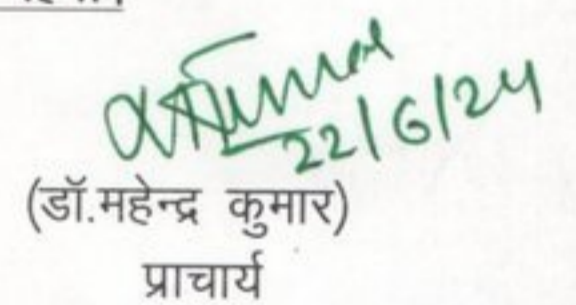 22/6/24
(डॉ.महेन्द्र कुमार)
प्राचार्य